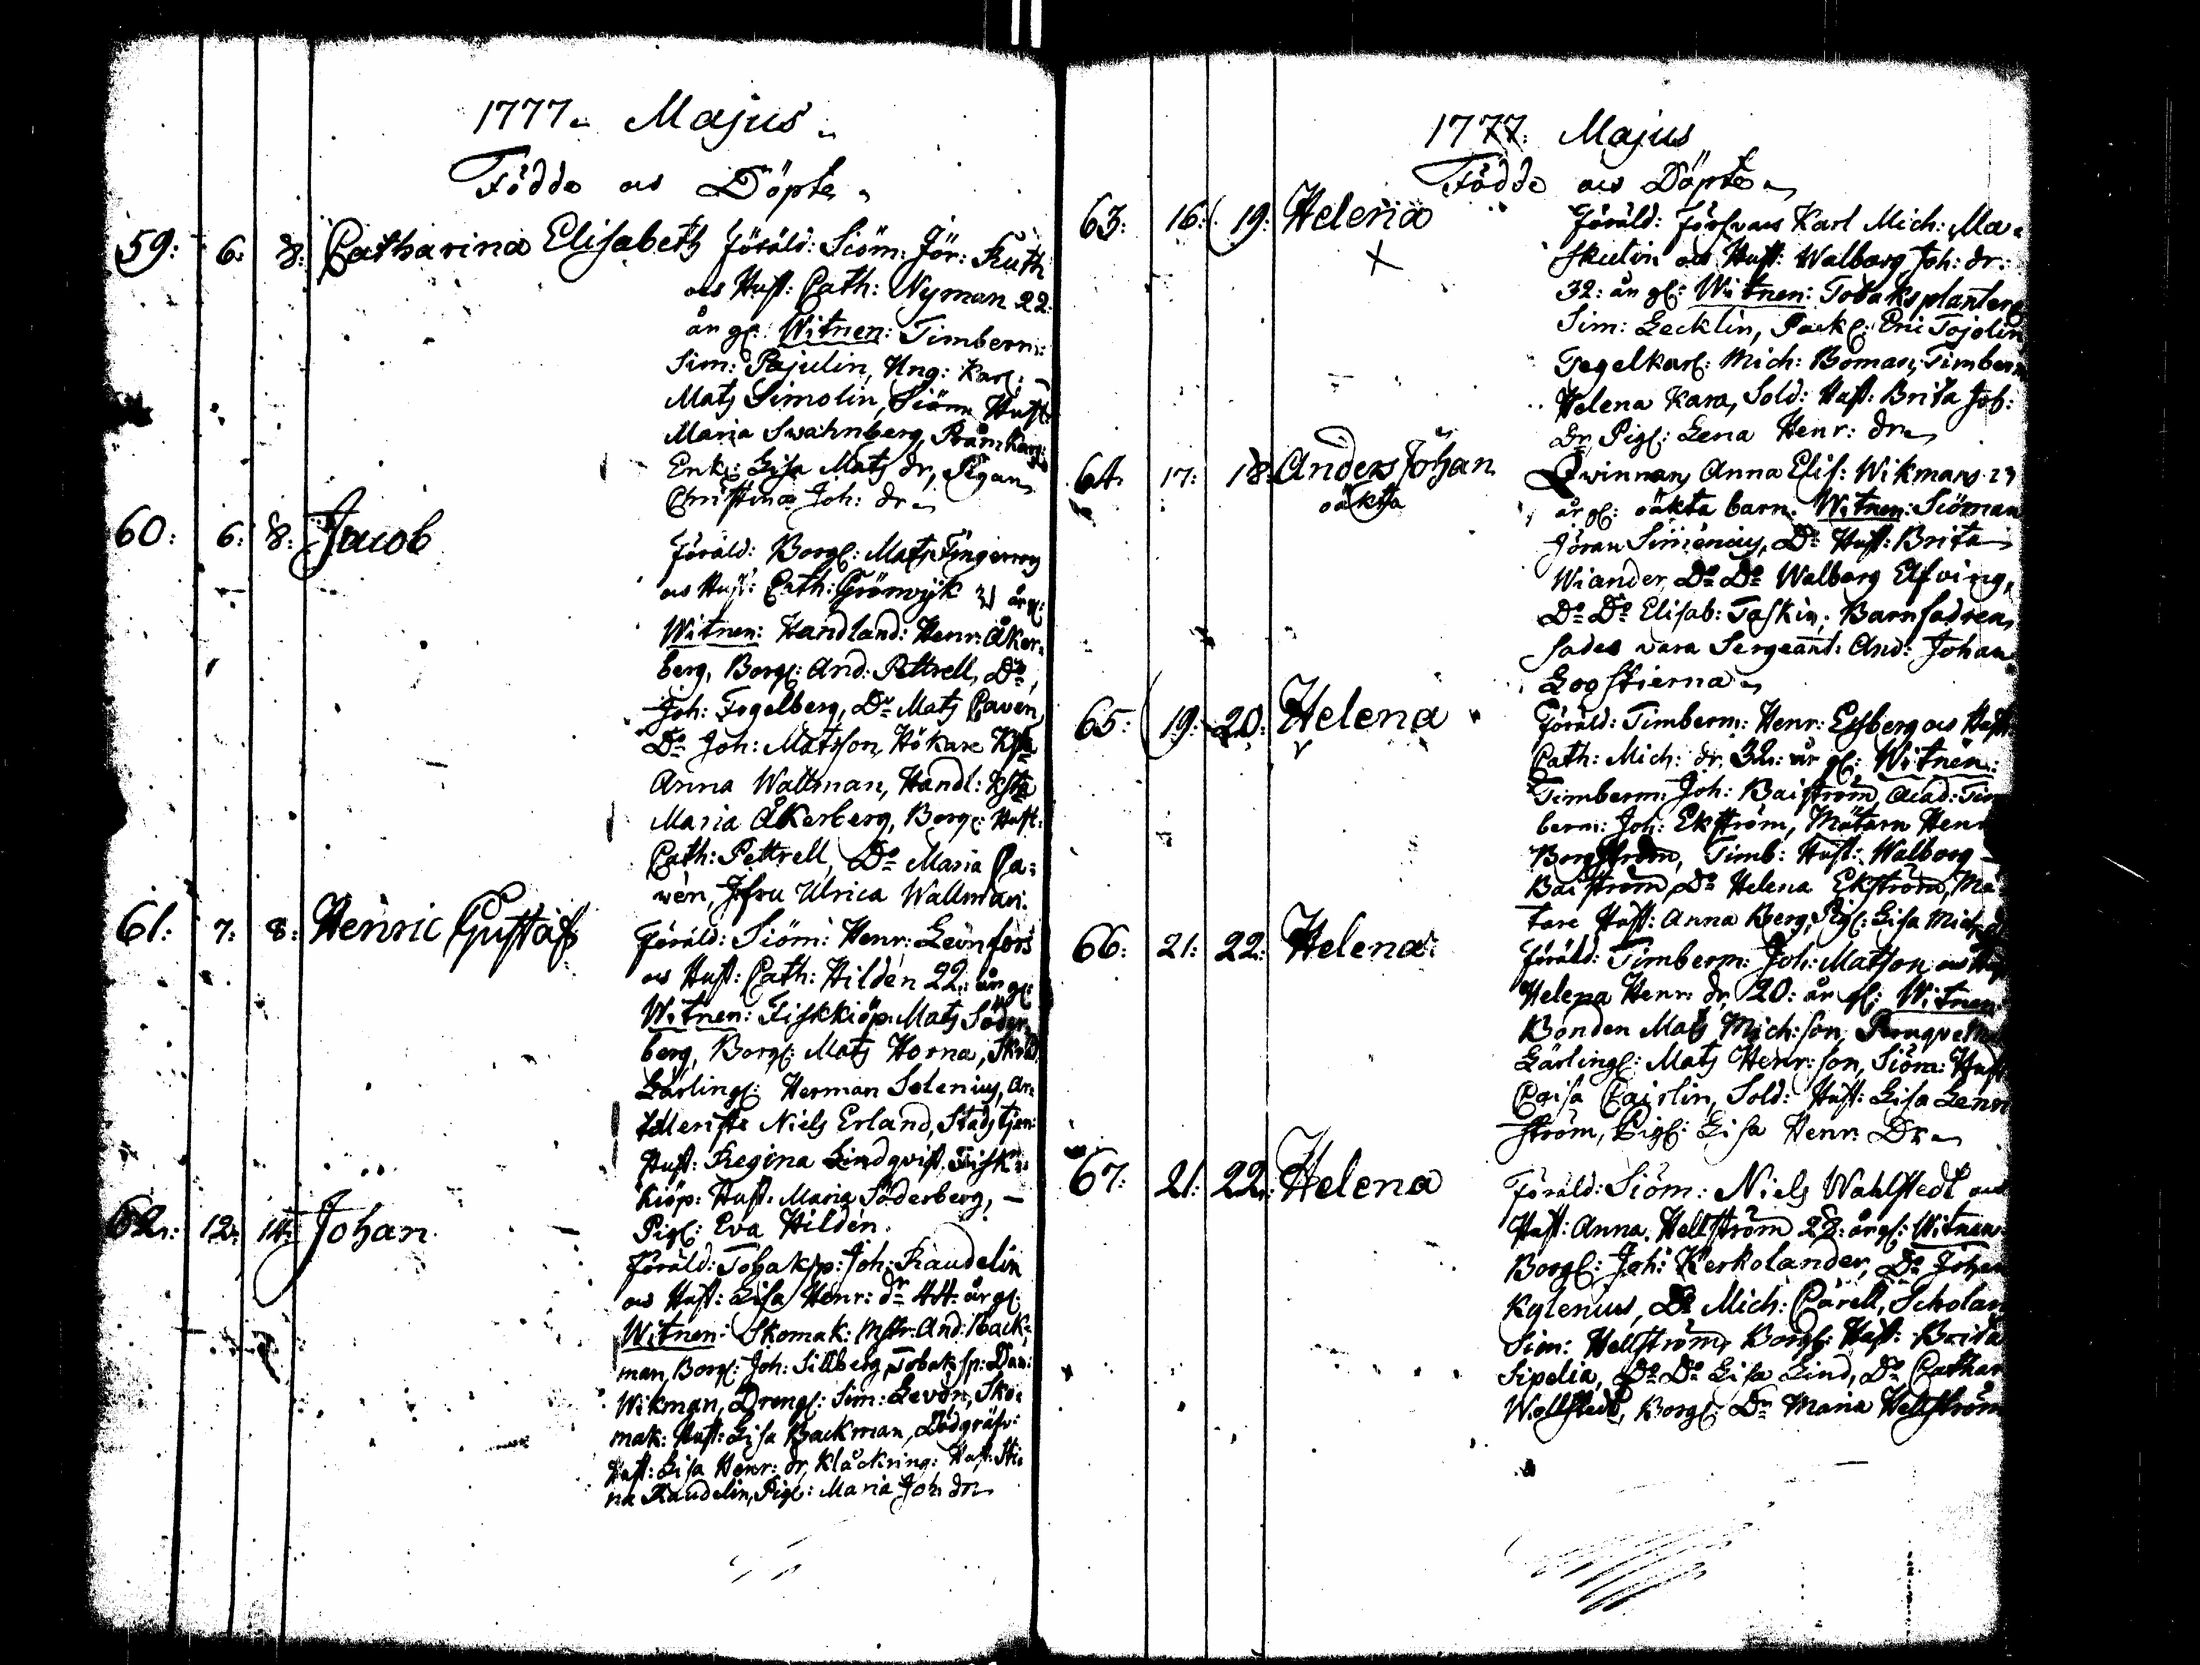 1777. Majus.
Födde och Döpte.
59: 6: 8: Catharina Elisabeth Föräld: Siöm: Jör: Ruth
och Hust: Cath: Nyman 22:
år gl: Witnen: Timberm:
Sim: Pajulin, Ung: Karl:
Mats Simolin, Siöm: Hust:
Maria Swahnberg, Pråmkarg:
Enk: Lisa Mats dr, Pigan
Christina Joh: dr
60: 6: 8: Jacob
Föräld: Borg: Mats Fingerroos
och Hust: Cath: Grönwijk år gl:
Witnen: Handland: Henr: Åker-
berg, Borg: And: Pettrell, Do,
Joh: Fogelberg, Do Mats Paven,
Do Joh: Matsson, Hökare Hust
Anna Wallman, Handl:
Maria Åkerberg, Borg: Hust:
Cath: Pettrell, Do Maria Pa-
ven, Jfru Ulrica Wallman.
61: 7: 8: Henric Gustaf
Föräld: Siöm: Henr: Leonfors
och Hust: Cath: Hildén 22: år gl:
Witnen: Fiskkiöp: Mats Söder-
berg, Borg: Mats Horna,
Lärling: Herman Solenius, Ar-
tilleriste Niels Erland, Stadstjen:
Hust: Regina Lindqvist, Fisk-
kiöp: Hust: Maria Söderberg,
Pig: Eva Hildén.
62: 12: 14: Johan
Föräld: Tobaksp: Joh: Raudelin
och Hust: Lisa Henr: dr 44 år gl:
Witnen: Skomak: Mstr: And: Back-
man, Borg: Joh: Sillberg, Tobaksp: Dan:
Wikman, Dreng: Sim: Levon, Sko-
mak: Hust: Lisa Backman, Dödgräfv:
Hust: Lisa Henr: dr, Klåckring: Hust: Sti-
na Raudelin, Pig: Maria Joh: dr
1777: Majus
Födde och Döpte
63: 16: 19: Helena
Föräld: Förswars Karl Mich: Ma-
skulin och Hust: Walborg Joh: dr:
32: år gl: Witnen: Tobaksplanter
Sim: Lecklin, Pack: Eric Tojolin
Tegelkarl: Mich: Boman, Timberm
Helena Kara, Sold: Hust: Brita Joh:
Dr, Pig: Lena Henr: dr
64: 17: 18: Anders Johan
oäkta
Qwinnan Anna Elis: Wikmans 23
år gl: oäkta barn. Witnen: Siöman
Jöran Simenius, Do Hust: Brita
Wiander, Do Do Walborg Elfving,
Do Do Elisab: Taskin. Barnfadren
sades vara Sergeant: And: Johan
Logstierna
65: 19: 20: Helena
Föräld: Timberm: Henr: Essberg och Hust:
Cath: Mich: dr 32: år gl: Witnen:
Timberm: Joh: Baiström, Acad: Tim
berm: Joh: Ekström, Mätarn Henr
Borgström, Timb: Hust: Walborg
Baiström, Do Helena Ekström, Mä-
tare Hust: Anna Berg, Pig: Lisa Mich: dr
66: 21: 22: Helena
Föräld: Timberm: Joh: Matson och Hust
Helena Henr: dr 20: år gl: Witnen:
Bonden Mats Mich:son,
Lärling: Mats Henr:son, Siöm: Hust
Caisa Cairlin, Sold: Hust: Lisa Lenn
ström, Pig: Lisa Henr: Dr
67: 21: 22: Helena
Föräld: Siöm: Niels Wahlstedt och
Hust: Anna Hellström 28: år gl: Witnen:
Borg: Joh: Kerkolander, Do Johan
Kylenius, Do Mich: Cärell, Scholar
Sim: Hellström, Borg: Hust: Brita
Sipelia, Do Do Lisa Lind, Do Cathar
Wollstedt, Borg: Dr Maria Hellström